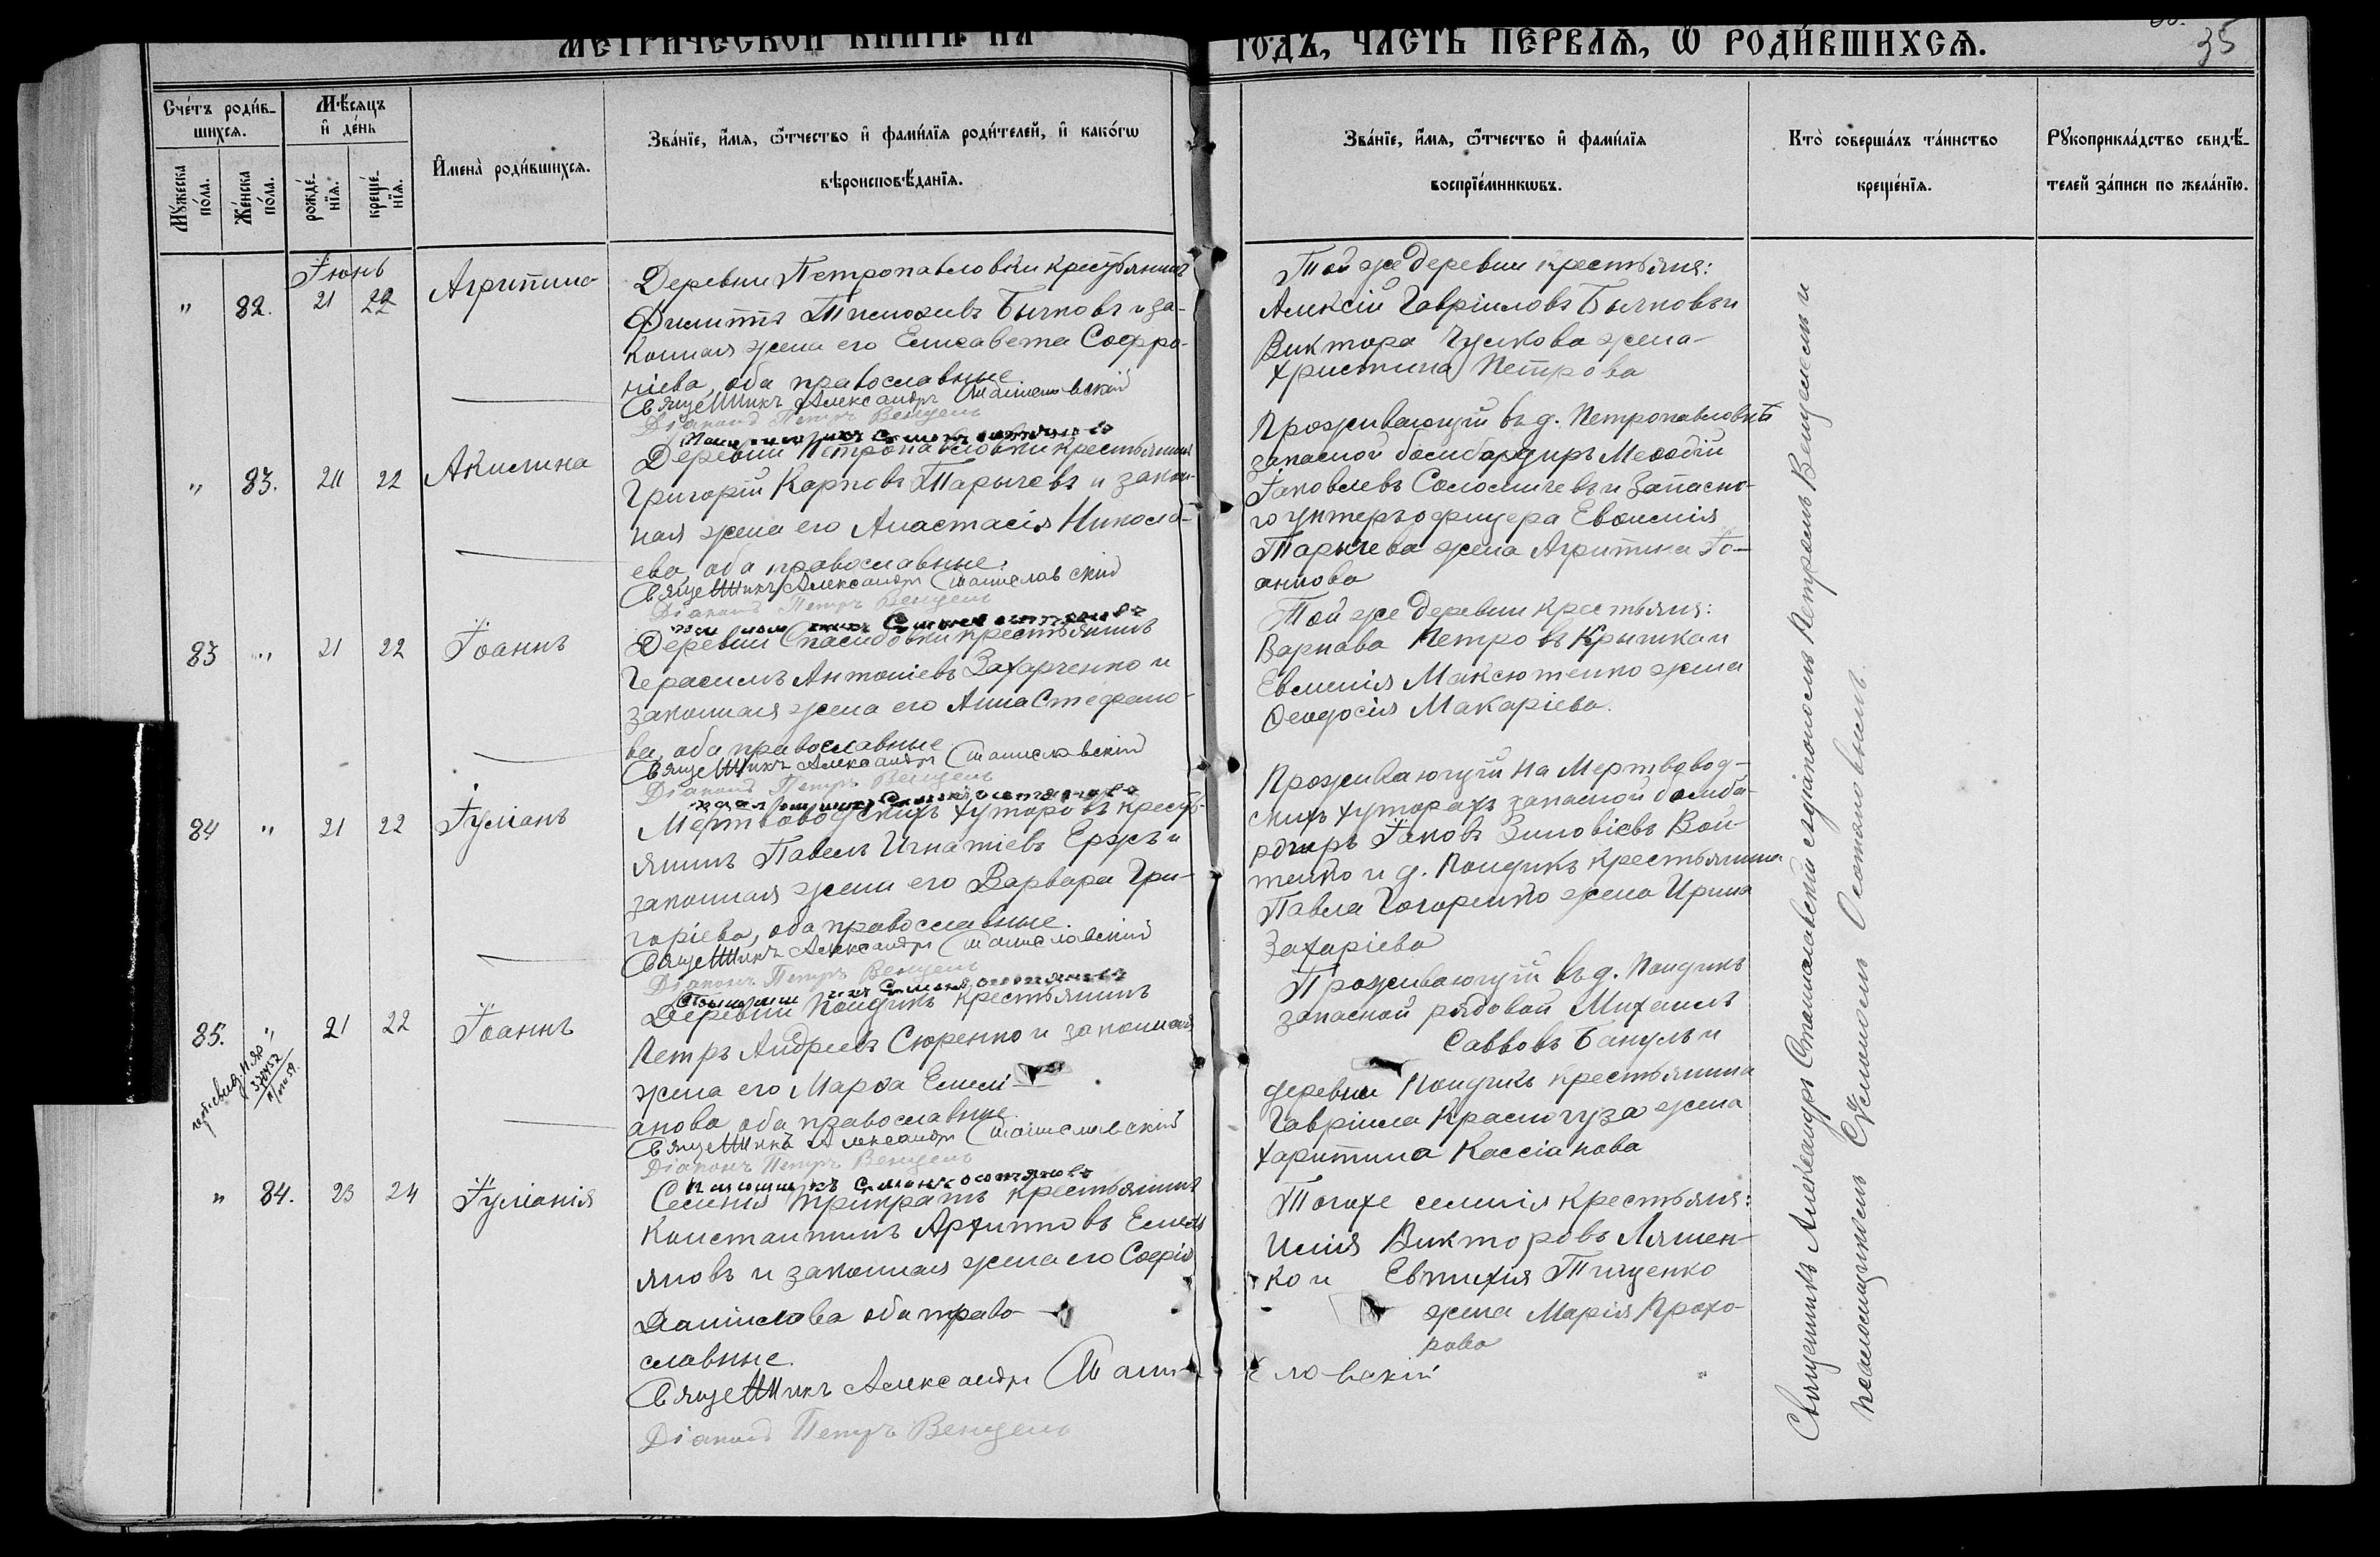 МЕТРИЧЕСКОЙ КНИГИ НА
ГОДЪ, ЧАСТЬ ПЕРВАЯ, Ѡ РОДИ́ВШИХСЯ.
35
Сче́тъ роди́в-
шихся.
Мѣ́сяцъ
и҆ де́нь
Мꙋ́жеска
по́ла.
Же́нска
по́ла.
рожде́-
нїя.
креще́-
нїя.
И҆мена̀ роди́вшихся.
Зва́нїе, и҆́мя, ѻ҆́тчество и҆ фами́лїя роди́телей, и҆ како́гѡ
вѣроисповѣ́данїя.
Зва́нїе, и҆́мя, ѻ҆́тчество и҆ фами́лїя
воспрїе́мникѡвъ.
Кто̀ соверша́лъ та́инство
креще́нїя.
Рꙋкоприкла́дство свидѣ́-
телей за́писи по жела́нїю.
Іюнь
" 82. 21 22 Агрипина
Деревни Петропавловки крестьянинъ
Филиппъ Тимоѳеевъ Бычковъ и за-
конная жена его Елисавета Софро-
ніева, оба православные
Священникъ Александръ Станиславскій
Діаконъ Петръ Венцель
Той же деревни крестьяне:
Алексій Гавріиловъ Бычковъ и
Виктора Чумкова жена
Христина Петрова
" 83. 21 22 Акилина
Деревни Петропавловки крестьянинъ
Григорій Карповъ Тарычевъ и закон-
ная жена его Анастасія Никола-
ева, оба православные.
Священникъ Александръ Станиславскій
Діаконъ Петръ Венцель
Проживающій въ д. Петропавловкѣ
запасной бомбардиръ Меѳодій
Іаковлевъ Соломичевъ и запасно-
го унтеръ офицера Евфимія
Тарычева жена Агрипина Іо-
аннова
83 " 21 22 Іоаннъ
Деревни Спасибовки крестьянинъ
Герасимъ Антоніевъ Захарченко и
законная жена его Анна Стефано-
ва, оба православные
Священникъ Александръ Станиславскій
Діаконъ Петръ Венцель
Той же деревни крестьяне:
Варнава Петровъ Крышка и
Евменія Максютенко жена
Ѳеодосія Макаріева.
84 " 21 22 Іуліанъ
Мертвоводскихъ хуторовъ кресть-
янинъ Павелъ Игнатіевъ Ержъ и
законная жена его Варвара Гри-
горіева, оба православные.
Священникъ Александръ Станиславскій
Діаконъ Петръ Венцель
Проживающій на Мертвовод-
скихъ хуторахъ запасной бомба-
рдиръ Іаковъ Зиновіевъ Вой-
тенко и д. Пондикъ крестьянина
Павла Гонаренко жена Ирина
Захаріева
85. " 21 22 Іоаннъ
Деревни Пондикъ крестьянинъ
Петръ Андреевъ Сюренко и законная
жена его Марѳа Емелі-
анова, оба православные.
Священникъ Александръ Станиславскій
Діаконъ Петръ Венцель
Проживающій въ д. Пондикъ
запасной рядовой Михаилъ
Савво́въ Бануль и
деревни Пондикъ крестьянина
Гавріила Красногуза жена
Харитина Кассіанова
" 84. 23 24 Іуліанія
Селенія Трикратъ крестьянинъ
Константинъ Архиповъ Емель-
яновъ и законная жена его Софія
Даніилова оба право-
славные.
Священникъ Александръ Станиславскій
Діаконъ Петръ Венцель
Того же селенія крестьяне:
Илія Викторовъ Ляшен-
ко и Евтихія Тищенко
жена Марія Прохо-
рова
Священникъ Александръ Станиславскій съ діакономъ Петромъ Венцелемъ и
псаломщикомъ Сѵмеономъ Осотяновымъ.